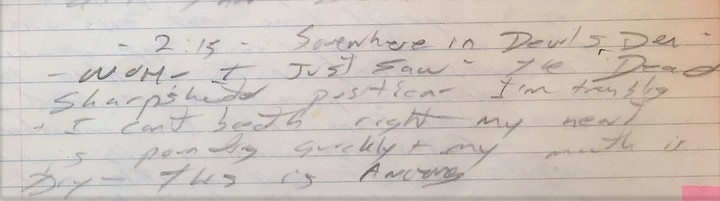 - 2:15 - Somewhere in Devil's Den -
- WOH - I Just Saw - The Dead
Sharpshooter position I'm trembling
- I can't breath right my heart
is pounding quickly + my mouth is
Dry - This is Amazing